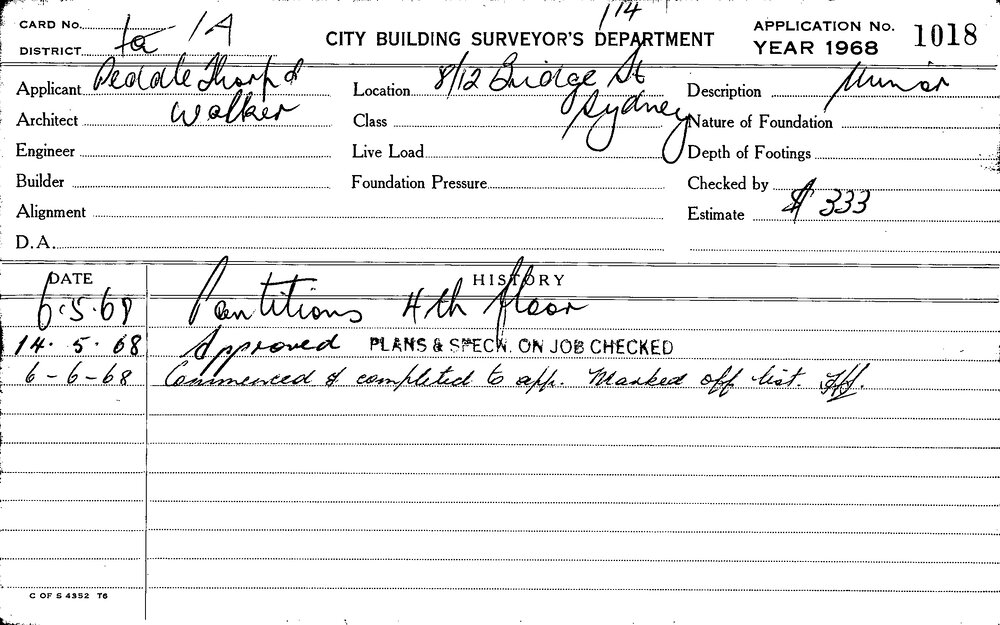 114
CARD No. APPLICATION No. 1018
DISTRICT 1A CITY BUILDING SURVEYOR'S DEPARTMENT YEAR 1968
Applicant Peddle Thorp & Location 8/12 Bridge St Description Minor
Architect Walker Class Sydney Nature of Foundation
Engineer Live Load Depth of Footings
Builder Foundation Pressure Checked by
Alignment Estimate $ 333
D.A.
DATE HISTORY
6.5.68 Partitions 4th floor
14. 5. 68 Approved PLANS & SPECN. ON JOB CHECKED
6-6-68 Commenced & completed to app. Marked off list.
C OF S 4352 T6